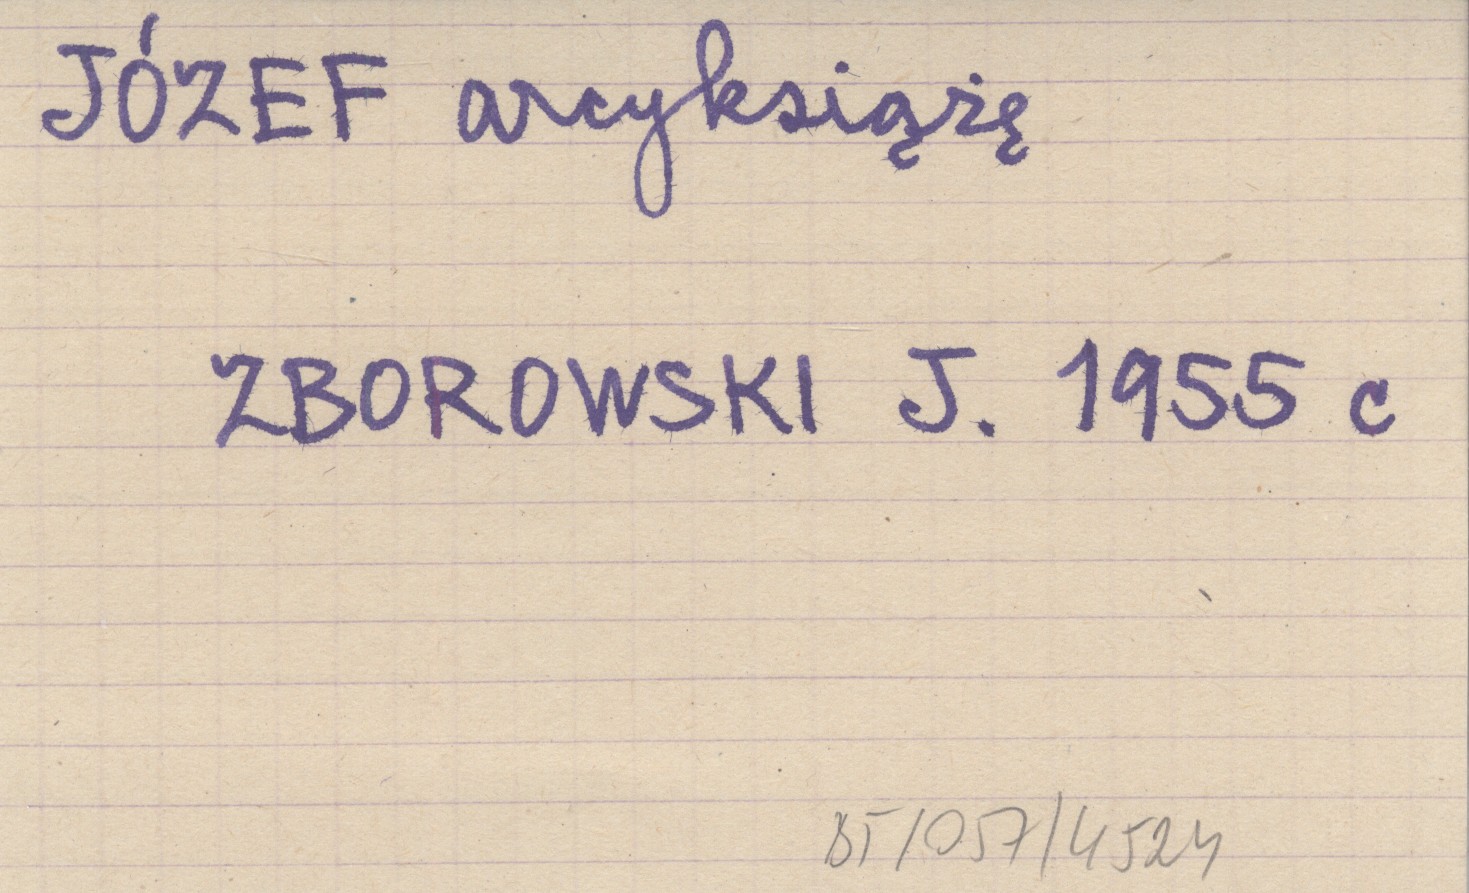 JÓZEF arcyksiążę
ZBOROWSKI J. 1955 c
BT/057/4524